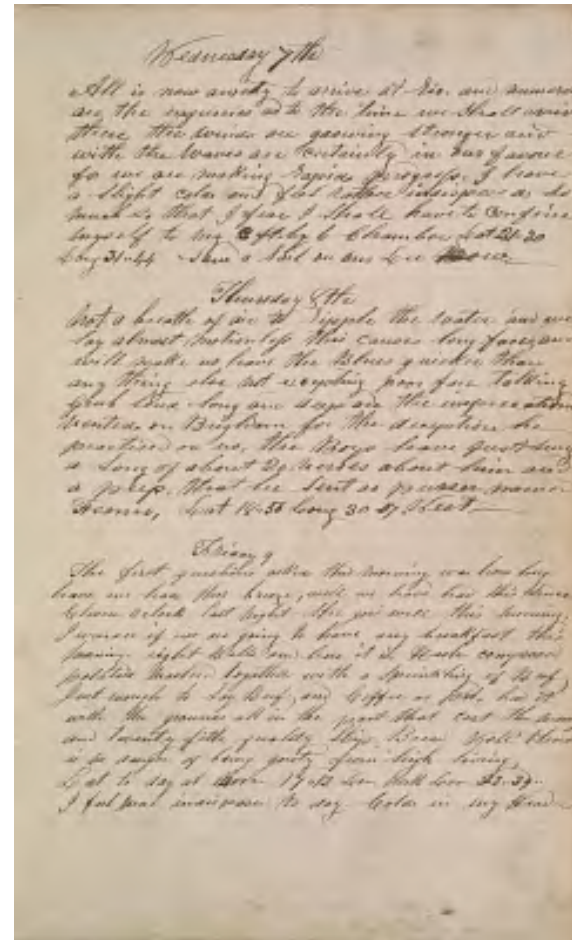 Wednesday 7th
All is now anxiety to arrive at Rio. and numero
are the inquiries as to the time we shall arrive
there, the winds are growing stronger and
with the waves are certainly in our favour
for we are making rapid progress. I have
a slight cold and feel rather indisposed so
much so that I fear I shall have to confine
myself to my 6 ft. by 6 Chamber Lat 21.20
Long 31.44 a Sail on our Lee
Thursday 8th
Not a breath of air to ripple the water and we
lay almost motionless this causes long faces, and
will make us have the Blues quicker than
any thing else not excepting poor fare talking
long and deep are the imprecations
vented on Brigham for the deception he
practised on us, the Boys have just sung
a Song of about 29 verses about him and
a that he sent as
Lat 18.58 Long 30 West
Friday 9
The first questions asked this morning was how long
have we had this breeze, well we have had this since
Eleven oclock last night this morning.
I wonder if we are going to have any breakfast this
morning right well and here it is Hash composed
potatoes mashed together with a sprinkling of Beef,
just enough to say Beef, and Coffee
with the all in the that cost the
and twenty fifth quality Ship Bread
is no danger of being gouty from high living,
Lat to day at Noon 17.13
I feel indisposed to day Cold in my Head